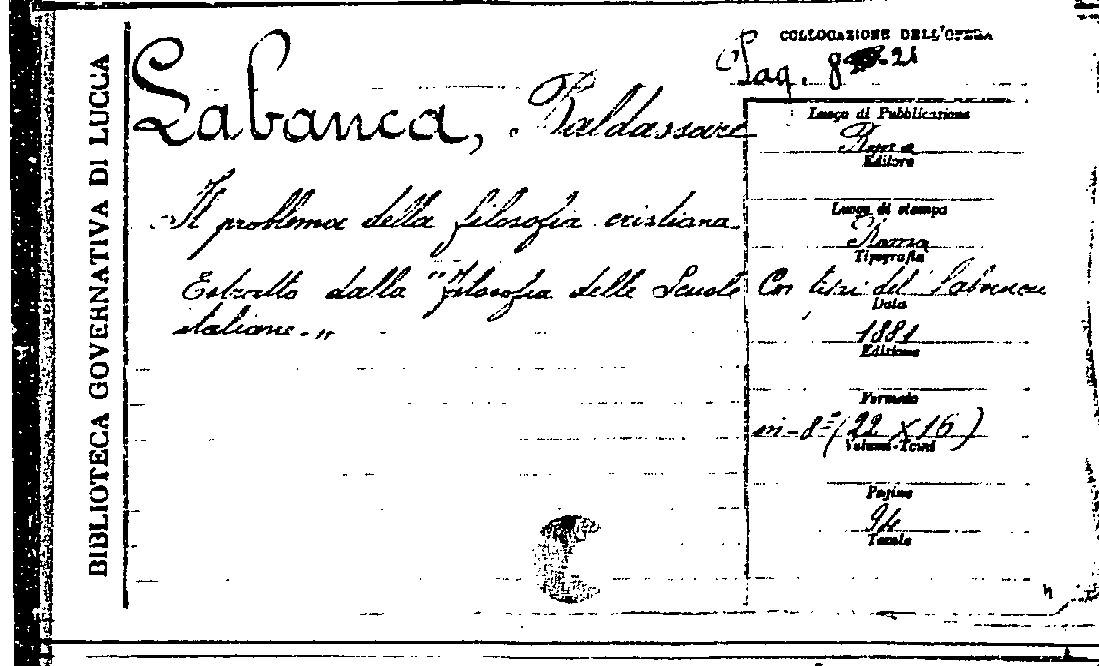 BIBLIOTECA GOVERNATIVA DI LUCCA
COLLOCAZIONE DELL'OPERA
Labanca, Baldassare
Il problema della filosofia cristiana.
Estratto dalla "filosofia delle Scuole
italiane.„
Luogo di Pubblicazione
Roma
Editore
Luogo di stampa
Roma
Tipografia
Con tipi del Salviucci
Data
1881
Edizione
Formato
in-8° (22 X 16)
Volumi-Tomi
Pagine
Tavole